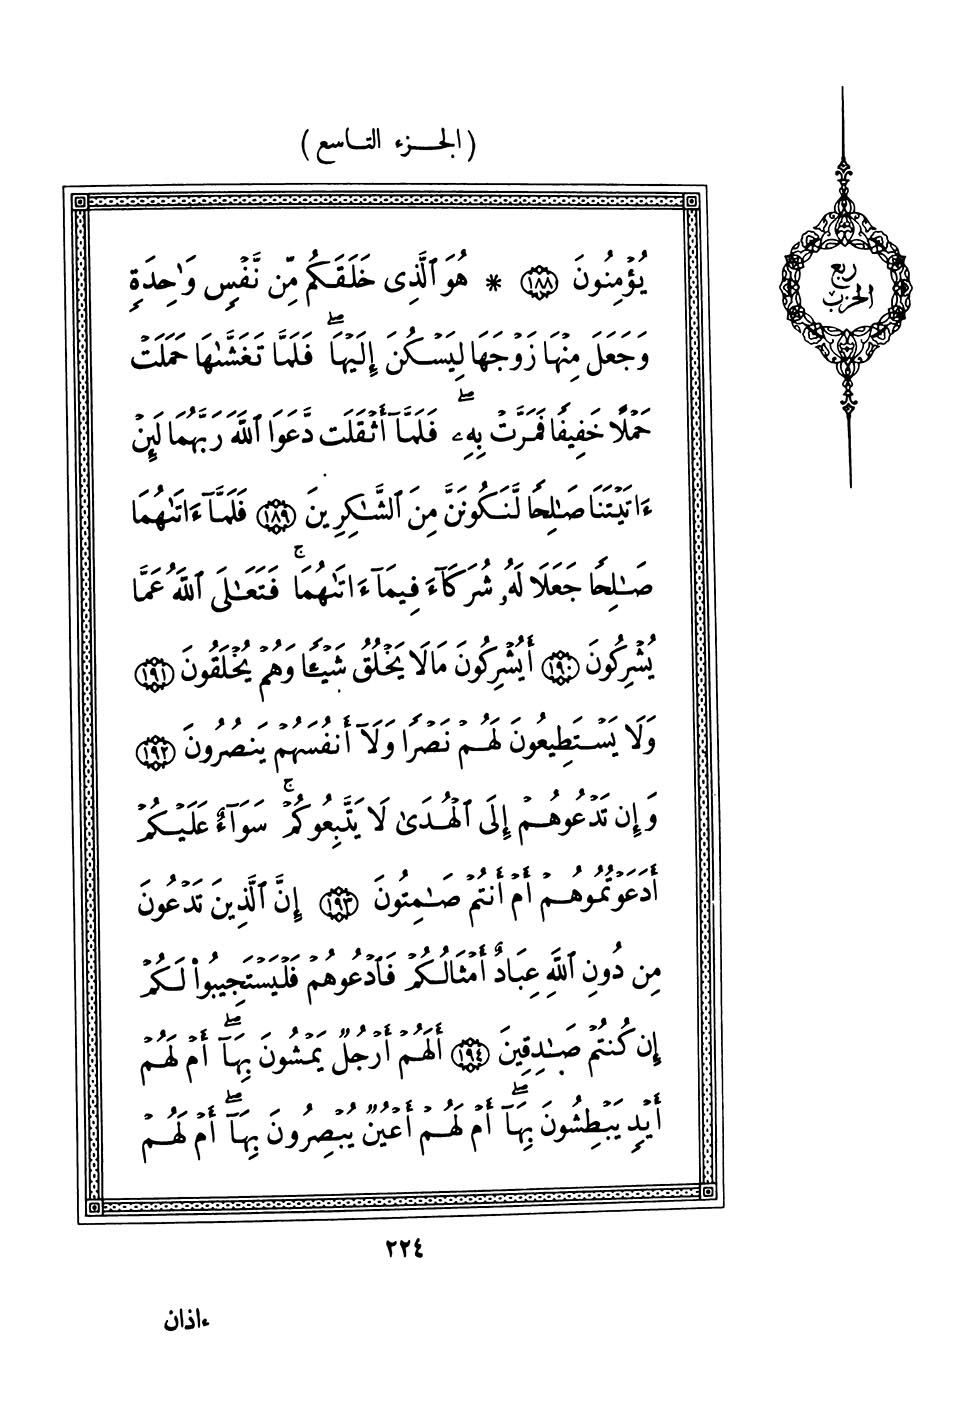 (الجزء التاسع)
ربع
الحزب
يُؤْمِنُونَ ۝١٨٨ * هُوَ ٱلَّذِى خَلَقَكُم مِّن نَّفْسٍ وَٰحِدَةٍ
وَجَعَلَ مِنْهَا زَوْجَهَا لِيَسْكُنَ إِلَيْهَا ۖ فَلَمَّا تَغَشَّىٰهَا حَمَلَتْ
حَمْلًا خَفِيفًا فَمَرَّتْ بِهِۦ ۖ فَلَمَّآ أَثْقَلَت دَّعَوَا ٱللَّهَ رَبَّهُمَا لَئِنْ
ءَاتَيْتَنَا صَـٰلِحًا لَّنَكُونَنَّ مِنَ ٱلشَّـٰكِرِينَ ۝١٨٩ فَلَمَّآ ءَاتَىٰهُمَا
صَـٰلِحًا جَعَلَا لَهُۥ شُرَكَآءَ فِيمَآ ءَاتَىٰهُمَا ۚ فَتَعَـٰلَى ٱللَّهُ عَمَّا
يُشْرِكُونَ ۝١٩٠ أَيُشْرِكُونَ مَا لَا يَخْلُقُ شَيْـًٔا وَهُمْ يُخْلَقُونَ ۝١٩١
وَلَا يَسْتَطِيعُونَ لَهُمْ نَصْرًا وَلَآ أَنفُسَهُمْ يَنصُرُونَ ۝١٩٢
وَإِن تَدْعُوهُمْ إِلَى ٱلْهُدَىٰ لَا يَتَّبِعُوكُمْ ۚ سَوَآءٌ عَلَيْكُمْ
أَدَعَوْتُمُوهُمْ أَمْ أَنتُمْ صَـٰمِتُونَ ۝١٩٣ إِنَّ ٱلَّذِينَ تَدْعُونَ
مِن دُونِ ٱللَّهِ عِبَادٌ أَمْثَالُكُمْ فَٱدْعُوهُمْ فَلْيَسْتَجِيبُوا۟ لَكُمْ
إِن كُنتُمْ صَـٰدِقِينَ ۝١٩٤ أَلَهُمْ أَرْجُلٌ يَمْشُونَ بِهَآ ۖ أَمْ لَهُمْ
أَيْدٍ يَبْطِشُونَ بِهَآ ۖ أَمْ لَهُمْ أَعْيُنٌ يُبْصِرُونَ بِهَآ ۖ أَمْ لَهُمْ
٢٢٤
ءاذان